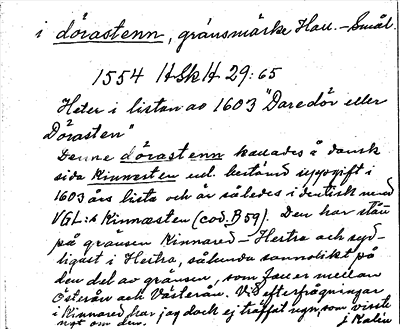 i dörastenn, gränsmärke Hall.-Smål.
1554 HSkH 29:65
Heter i listan av 1603 "Daredör eller
Dörasten"
Denne dörastenn kallades å dansk
sida Kinnæsten enl. bestämd uppgift i
1603 års lista och är således identisk med
VGL:s Kinnæsten (cod. B 59). Den har stått
på gränsen Kinnared – Hestra och syd-
ligast i Hestra, sålunda sannolikt på
den del av gränsen, som faller mellan
Österån och Västerån. Vid efterfrågningar
i Kinnared har jag dock ej träffat ngn, som visste
ngt om den. J. Kalén